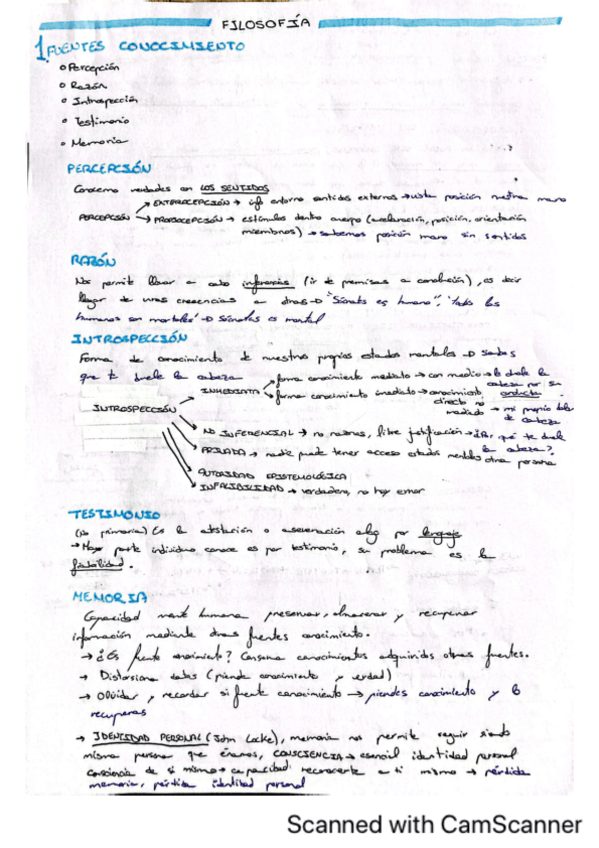 FILOSOFÍA
1. FUENTES CONOCIMIENTO
o Percepción
o Razón
o Introspección
o Testimonio
o Memoria
PERCEPCIÓN
Conocemos verdades con LOS SENTIDOS
PERCEPCIÓN
→ EXTEROCEPCIÓN → entorno sentidos externos → posición nuestra mano
→ PROPIOCEPCIÓN → estímulos dentro cuerpo (aceleración, posición, orientación
miembros) → sabemos posición mano sin sentidos
RAZÓN
Nos permite llevar a cabo inferencias (ir de premisas a conclusión), es decir
llegar de unas creencias a otras → "Sócrates es humano", "todos los
humanos son mortales" → Sócrates es mortal
INTROSPECCIÓN
Forma de conocimiento de nuestros propios estados mentales → sabes
que te duele la cabeza
INTROSPECCIÓN
INMEDIATA
→ forma conocimiento mediato → con medio → le duele la
cabeza por su conducta
→ forma conocimiento inmediato → conocimiento
directo no mediado → mi propio dolor
de cabeza
NO INFERENCIAL → no razones, libre justificación → ¿Por qué te duele
la cabeza?
PRIVADA → nadie puede tener acceso estados mentales otra persona
AUTORIDAD EPISTEMOLÓGICA
INFALIBILIDAD → verdadera, no hay error
TESTIMONIO
(No primaria) Es la atestación o aseveración algo por lenguaje
→ Mayor parte individuo conoce es por testimonio, su problema es la
fiabilidad.
MEMORIA
Capacidad mente humana preservar, almacenar y recuperar
información mediante otras fuentes conocimiento.
→ ¿Es fuente conocimiento? Conserva conocimientos adquiridos otras fuentes.
→ Distorsiona datos (pierde conocimiento y verdad)
→ Olvidar y recordar si fuente conocimiento → pierdes conocimiento y lo
recuperas
→ IDENTIDAD PERSONAL (John Locke), memoria nos permite seguir siendo
misma persona que éramos, CONSCIENCIA → esencial identidad personal
Consciencia de si mismo → capacidad reconocerte a ti mismo → pérdida
memoria, pérdida identidad personal
Scanned with CamScanner